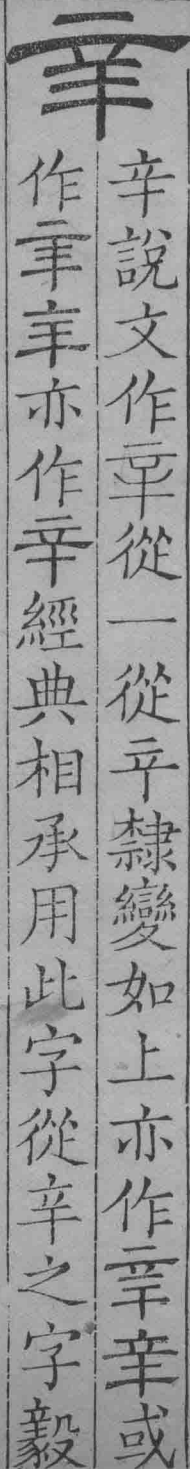 𨐌
辛說文作辛從一從䇂隸變如上亦作𨐌或
作亦作辛經典相承用此字從辛之字毅